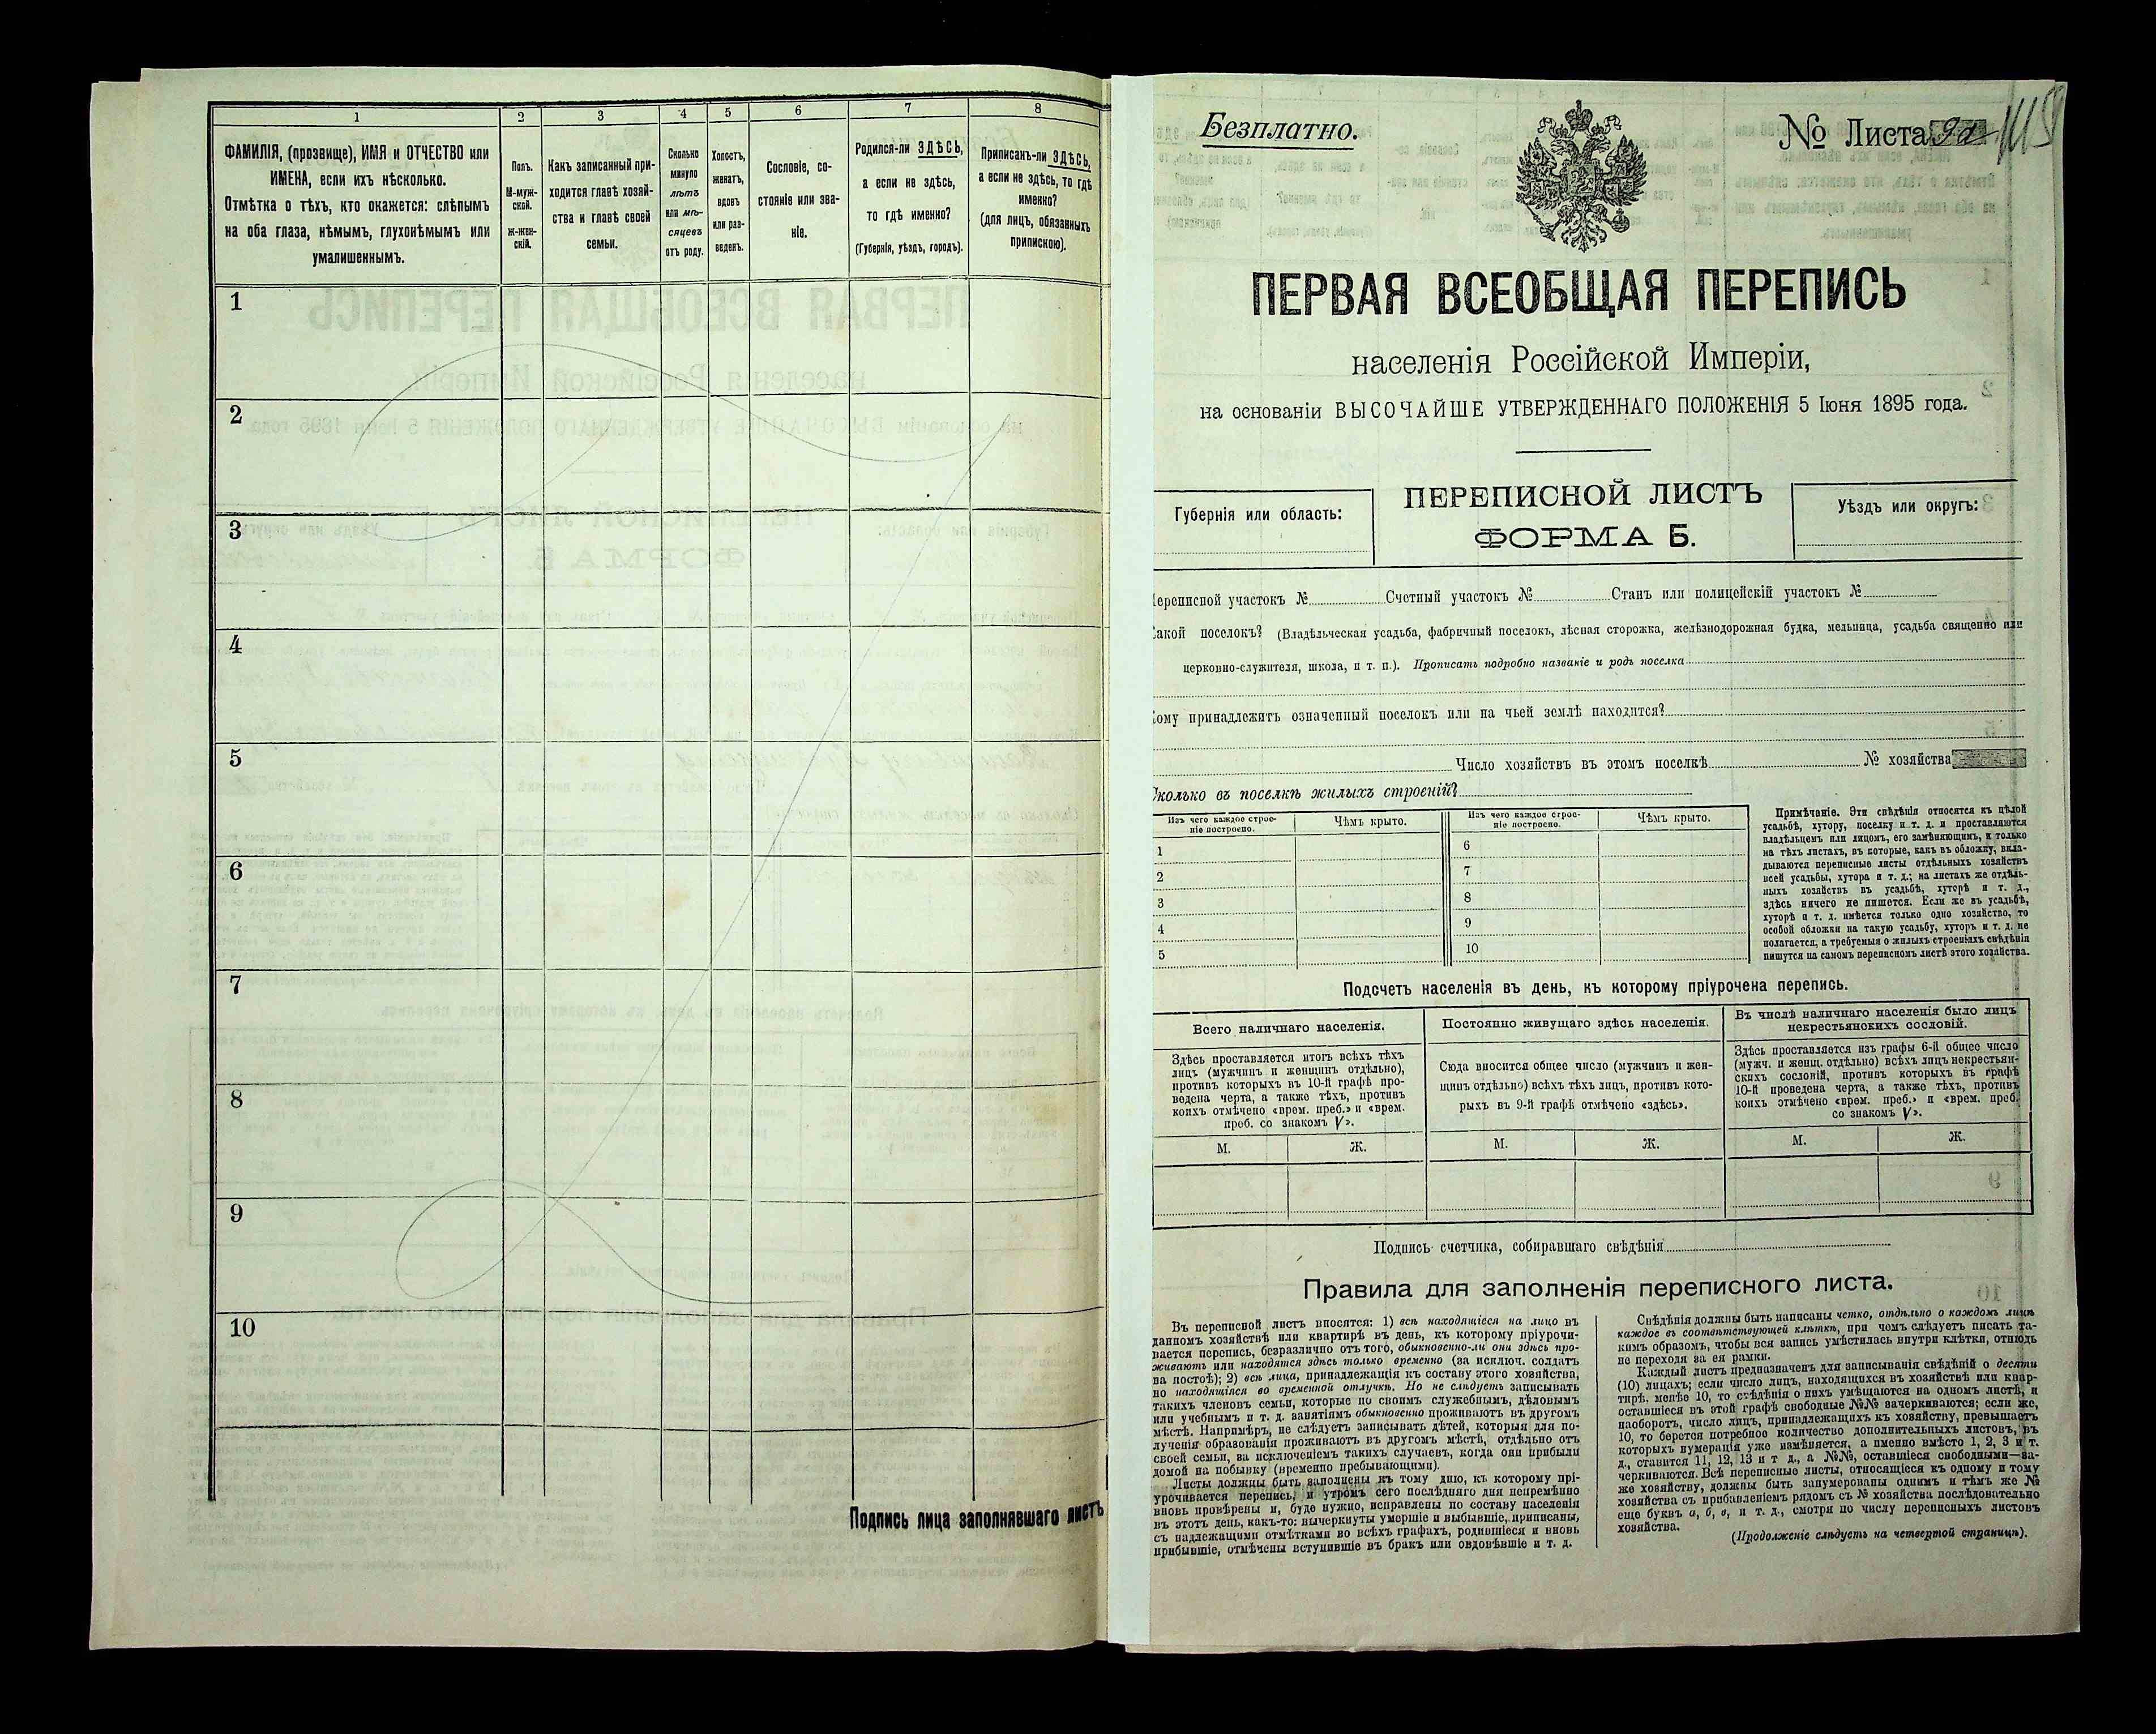 1 2 3 4 5 6 7 8
ФАМИЛІЯ, (прозвище), ИМЯ и ОТЧЕСТВО или
ИМЕНА, если ихъ нѣсколько.
Отмѣтка о тѣхъ, кто окажется: слѣпымъ
на оба глаза, нѣмымъ, глухонѣмымъ или
умалишеннымъ.
Полъ.
М-муж-
ской.
ж-жен-
скій.
Какъ записанный при-
ходится главѣ хозяй-
ства и главѣ своей
семьи.
Сколько
минуло
лѣтъ
или мѣ-
сяцевъ
отъ роду.
Холостъ,
женатъ,
вдовъ
или раз-
веденъ.
Сословіе, со-
стояніе или зва-
ніе.
Родился-ли ЗДѢСЬ,
а если не здѣсь,
то гдѣ именно?
(Губернія, уѣздъ, городъ).
Приписанъ-ли ЗДѢСЬ,
а если не здѣсь, то гдѣ
именно?
(для лицъ, обязанныхъ
припискою).
1
2
3
4
5
6
7
8
9
10
Подпись лица заполнявшаго листъ
Безплатно.
№ Листа
ПЕРВАЯ ВСЕОБЩАЯ ПЕРЕПИСЬ
населенія Россійской Имперіи,
на основаніи ВЫСОЧАЙШЕ УТВЕРЖДЕННАГО ПОЛОЖЕНІЯ 5 Іюня 1895 года.
Губернія или область:
ПЕРЕПИСНОЙ ЛИСТЪ
ФОРМА Б.
Уѣздъ или округъ:
ереписной участокъ № Счетный участокъ № Станъ или полицейскій участокъ №
акой поселокъ? (Владѣльческая усадьба, фабричный поселокъ, лѣсная сторожка, желѣзнодорожная будка, мельница, усадьба священно или
церковно-служителя, школа, и т. п.). Прописать подробно названіе и родъ поселка
ому принадлежитъ означенный поселокъ или на чьей землѣ находится?
Число хозяйствъ въ этомъ поселкѣ № хозяйства
колько въ поселкѣ жилыхъ строеній?
Изъ чего каждое строе-
ніе построено.
Чѣмъ крыто.
Изъ чего каждое строе-
ніе построено.
Чѣмъ крыто.
1 6
2 7
3 8
4 9
5 10
Примѣчаніе. Эти свѣдѣнія относятся къ цѣлой
усадьбѣ, хутору, поселку и т. д. и проставляются
владѣльцемъ или лицомъ, его замѣняющимъ, и только
на тѣхъ листахъ, въ которые, какъ въ обложку, вкла-
дываются переписные листы отдѣльныхъ хозяйствъ
всей усадьбы, хутора и т. д.; на листахъ же отдѣль-
ныхъ хозяйствъ въ усадьбѣ, хуторѣ и т. д.,
здѣсь ничего не пишется. Если же въ усадьбѣ,
хуторѣ и т. д. имѣется только одно хозяйство, то
особой обложки на такую усадьбу, хуторъ и т. д. не
полагается, а требуемыя о жилыхъ строеніяхъ свѣдѣнія
пишутся на самомъ переписномъ листѣ этого хозяйства.
Подсчетъ населенія въ день, къ которому пріурочена перепись.
Всего наличнаго населенія.
Здѣсь проставляется итогъ всѣхъ тѣхъ
лицъ (мужчинъ и женщинъ отдѣльно),
противъ которыхъ въ 10-й графѣ про-
ведена черта, а также тѣхъ, противъ
коихъ отмѣчено «врем. преб.» и «врем.
преб. со знакомъ V».
Постоянно живущаго здѣсь населенія.
Сюда вносится общее число (мужчинъ и жен-
щинъ отдѣльно) всѣхъ тѣхъ лицъ, противъ кото-
рыхъ въ 9-й графѣ отмѣчено «здѣсь».
Въ числѣ наличнаго населенія было лицъ
некрестьянскихъ сословій.
Здѣсь проставляется изъ графы 6-й общее число
(мужч. и женщ. отдѣльно) всѣхъ лицъ некрестьян-
скихъ сословій, противъ которыхъ въ графѣ
10-й проведена черта, а также тѣхъ, противъ
коихъ отмѣчено «врем. преб.» и «врем. преб.
со знакомъ V».
М. Ж. М. Ж. М. Ж.
Подпись счетчика, собиравшаго свѣдѣнія
Правила для заполненія переписного листа.
Въ переписной листъ вносятся: 1) всѣ находящіеся на лицо въ
данномъ хозяйствѣ или квартирѣ въ день, къ которому пріурочи-
вается перепись, безразлично отъ того, обыкновенно-ли они здѣсь про-
живаютъ или находятся здѣсь только временно (за исключ. солдатъ
на постоѣ); 2) всѣ лица, принадлежащія къ составу этого хозяйства,
но находящіяся во временной отлучкѣ. Но не слѣдуетъ записывать
такихъ членовъ семьи, которые по своимъ служебнымъ, дѣловымъ
или учебнымъ и т. д. занятіямъ обыкновенно проживаютъ въ другомъ
мѣстѣ. Напримѣръ, не слѣдуетъ записывать дѣтей, которыя для по-
лученія образованія проживаютъ въ другомъ мѣстѣ, отдѣльно отъ
своей семьи, за исключеніемъ такихъ случаевъ, когда они прибыли
домой на побывку (временно пребывающими).
Листы должны быть заполнены къ тому дню, къ которому прі-
урочивается перепись, и утромъ сего послѣдняго дня непремѣнно
вновь провѣрены и, буде нужно, исправлены по составу населенія
въ этотъ день, какъ-то: вычеркнуты умершіе и выбывшіе, приписаны,
съ надлежащими отмѣтками во всѣхъ графахъ, родившіеся и вновь
прибывшіе, отмѣчены вступившіе въ бракъ или овдовѣвшіе и т. д.
Свѣдѣнія должны быть написаны четко, отдѣльно о каждомъ лицѣ
каждое въ соотвѣтствующей клѣткѣ, при чемъ слѣдуетъ писать та-
кимъ образомъ, чтобы вся запись умѣстилась внутри клѣтки, отнюдь
не переходя за ея рамки.
Каждый листъ предназначенъ для записыванія свѣдѣній о десяти
(10) лицахъ; если число лицъ, находящихся въ хозяйствѣ или квар-
тирѣ, менѣе 10, то свѣдѣнія о нихъ умѣщаются на одномъ листѣ, и
оставшіеся въ этой графѣ свободные №№ зачеркиваются; если же,
наоборотъ, число лицъ, принадлежащихъ къ хозяйству, превышаетъ
10, то берется потребное количество дополнительныхъ листовъ, въ
которыхъ нумерація уже измѣняется, а именно вмѣсто 1, 2, 3 и т.
д., ставится 11, 12, 13 и т д., а №№, оставшіеся свободными—за-
черкиваются. Всѣ переписные листы, относящіеся къ одному и тому
же хозяйству, должны быть занумерованы однимъ и тѣмъ же №
хозяйства съ прибавленіемъ рядомъ съ № хозяйства послѣдовательно
еще буквъ а, б, в, и т. д., смотря по числу переписныхъ листовъ
хозяйства.
(Продолженіе слѣдуетъ на четвертой страницѣ).